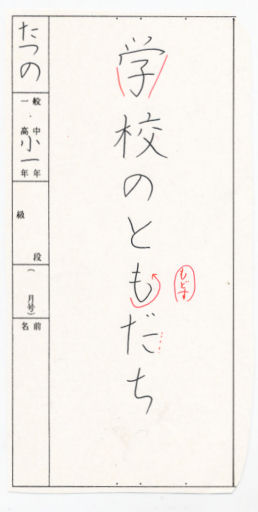 学校のともだち
もどす
たつの
一般・高中小一年年
級
段
(月号)
名前